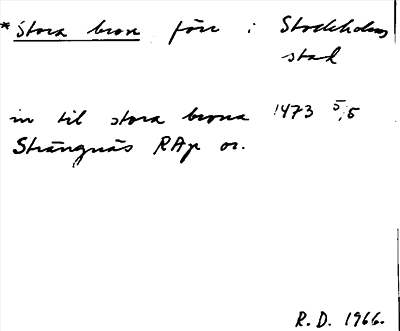 *Stora bron förr i Stockholms
stad
in til stora brona 1473 5/5
Strängnäs RAp or.
R.D. 1966.